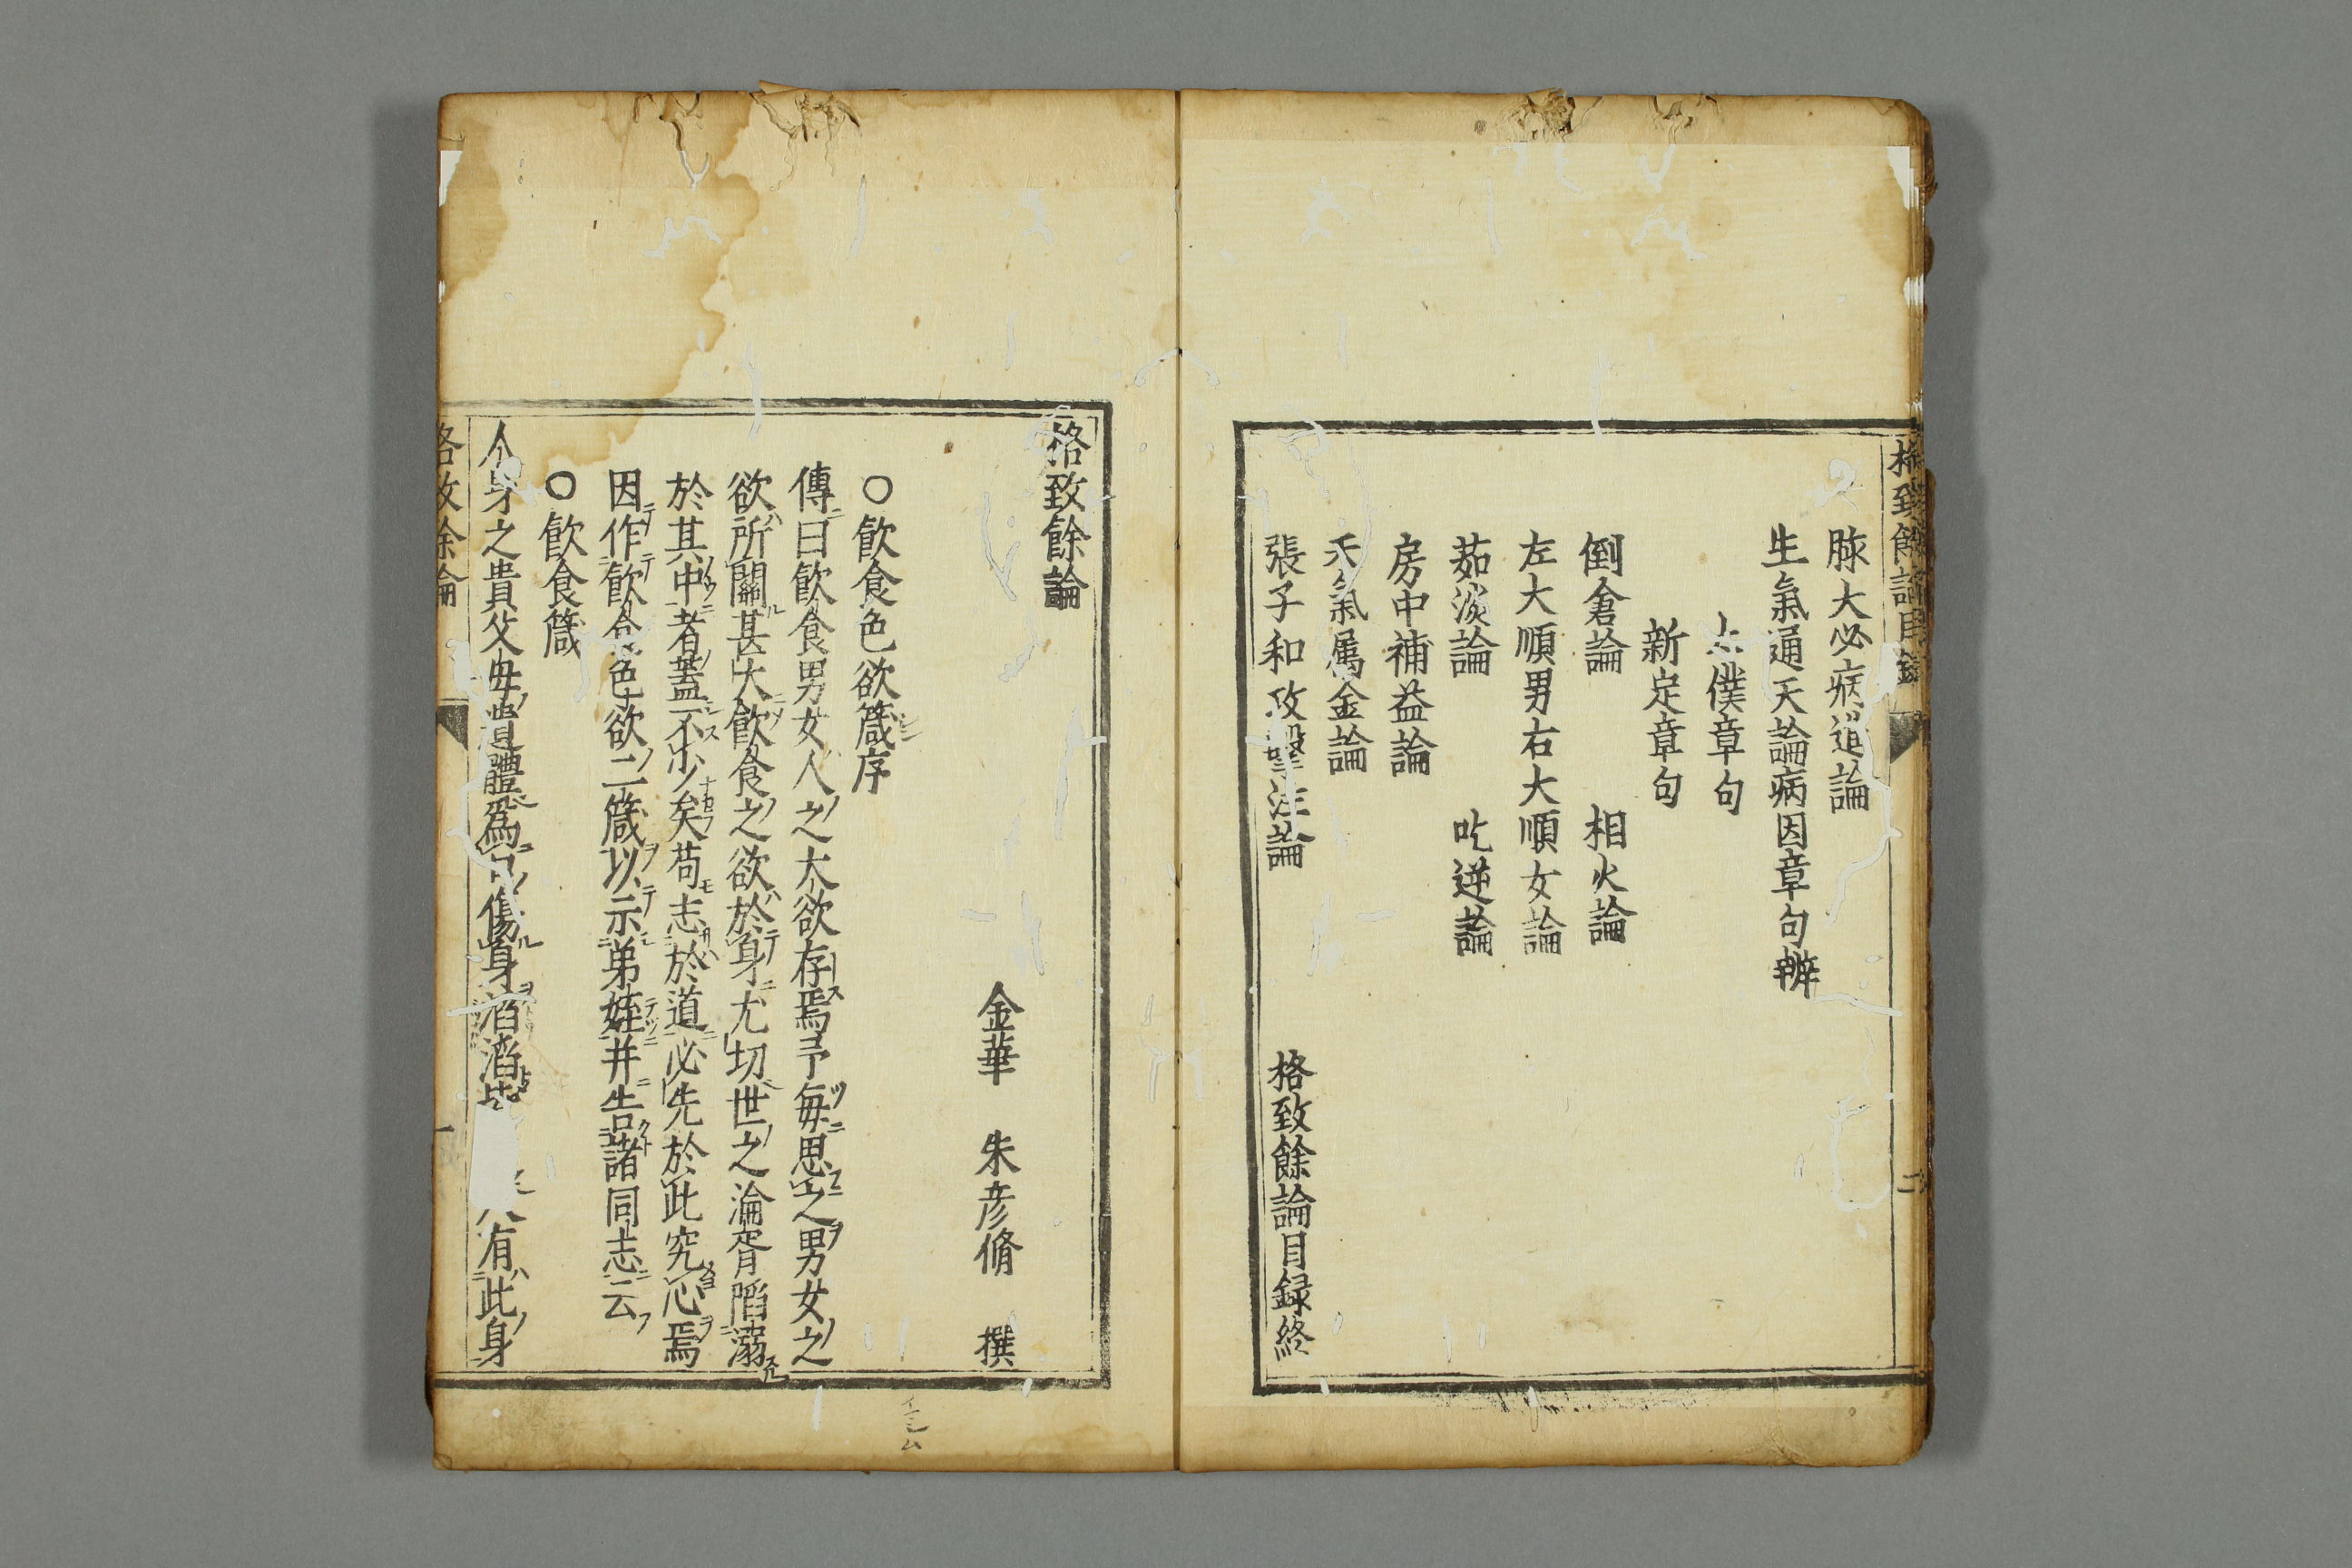 格致餘論目録
脉大必病進論
生氣通天論病因章句辨
太僕章句
新定章句
倒倉論　相火論
左大順男右大順女論
茹淡論　吃逆論
房中補益論
天氣属金論
張子和攻撃注論
格致餘論目録終
二
格致餘論
金華　朱彦脩　撰
〇飲食色欲箴序
傳曰飲食男女人之大欲存焉予毎思之男女之
欲所關甚大飲食之欲於身尤切世之淪胥陷溺
於其中者蓋不少矣苟志於道必先於此究心焉
因作飲食色欲二箴以示弟姪并告諸同志云
〇飲食箴
人身之貴父母遺體爲口傷身滔滔皆
有此身
格致餘論
一